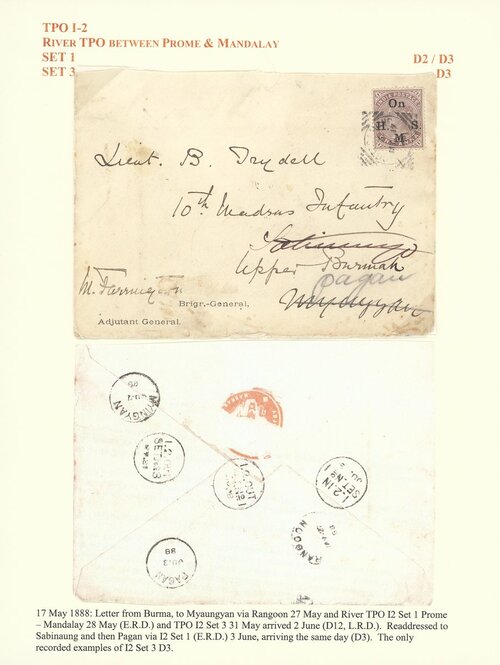 TPO I-2
RIVER TPO BETWEEN PROME & MANDALAY
SET 1 D2 / D3
SET 3 D3
INDIA POSTAGE
On
H. S.
M.
Lieut. B. Trydell
10th Madras Infantry
Sabinaung
Upper Burmah
Pagan
Myaungyan
M. Farrington
Brigr.-General,
Adjutant General.
MYINGYAN
I.2.OUT
SET NO 3
I.2.OUT
I.2.IN
SET NO 1
RANGOON
PAGAN
JU.3
88
17 May 1888: Letter from Burma, to Myaungyan via Rangoon 27 May and River TPO I2 Set 1 Prome
– Mandalay 28 May (E.R.D.) and TPO I2 Set 3 31 May arrived 2 June (D12, L.R.D.). Readdressed to
Sabinaung and then Pagan via I2 Set 1 (E.R.D.) 3 June, arriving the same day (D3). The only
recorded examples of I2 Set 3 D3.